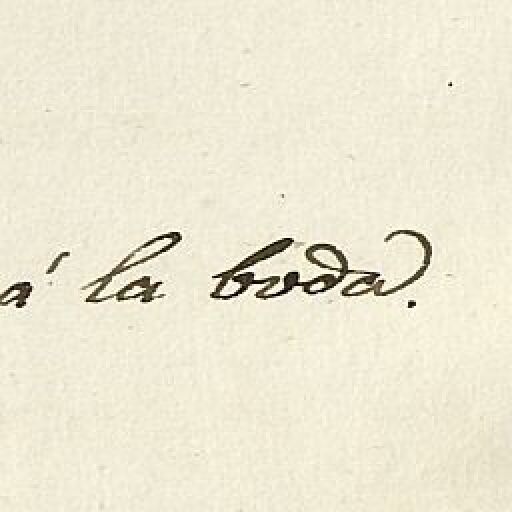 á la boda.